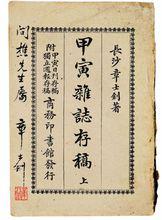 長沙章士釗著
甲寅雜誌存稿 上
附甲寅日刊存稿
獨立週報存稿
商務印書館發行
先生屬
章士釗